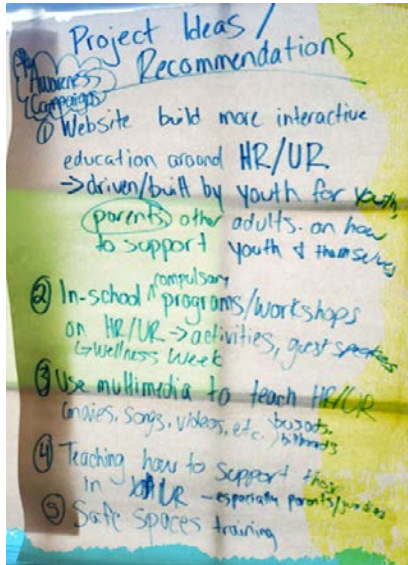 Project Ideas /
Recommendations
Awareness
Campaigns
① Website build more interactive
education around HR/UR
→driven/built by youth for youth,
parents, other adults. on how
to support youth & themselves
② In-school ^ compulsory programs/workshops
on HR/UR → activities, guest speakers
↳Wellness Week
③ Use multimedia to teach HR/UR
(movies, songs, videos, etc.) bus ads, billboards
④ Teaching how to support those
in UR – especially parents/
⑤ Safe spaces training